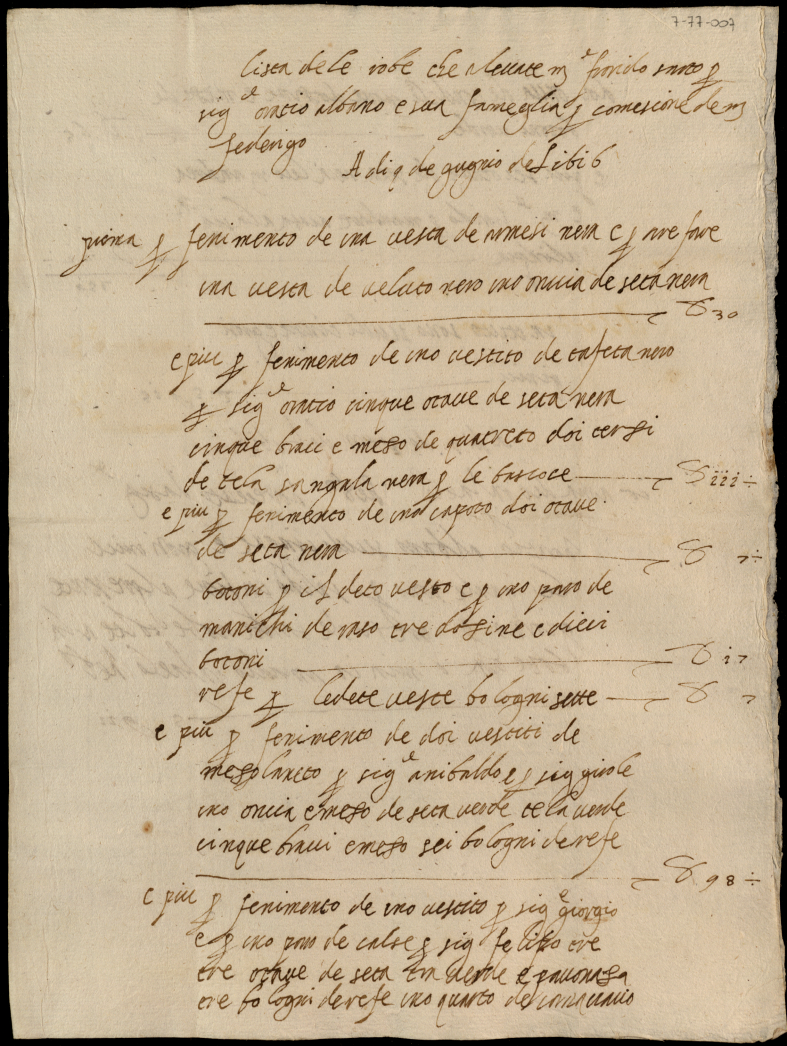 7-77-007
lista de le robe che a levate m^e florido sarto p
sig^e oratio albano e sua fameglia p comesione de m
federigo
A di 9 de gugnio de
prima p fenimento de una vesta de ormesi nera e p are fare
una vesta de veluto nero uno oncia de seta nera
30
e piu p fenimento de uno vestito de tafeta nero
p sig^e oratio cinque otave de seta nera
cinque braci e meso de quatreto doi tersi
de tela sangala nera p le
iii÷
e piu p fenimento de uno capoto doi otave
de seta nera
7÷
botoni p il deto vesto e p uno paro de
manichi de raso tre dosine e dieci
botoni
i7
refe p le dete veste bologni sette
7
e piu p fenimento de doi vestiti de
mesolaneto p sig^e anibaldo e p sig
uno oncia e meso de seta verde tela verde
cinque braci e meso sei bologni de refe
98÷
e piu p fenimento de uno vestito p sig^e giorgio
e p uno paro de calse p sig felipo tre
tre otave de seta tra verde e pavonasa
tre bologni de refe uno quarto de